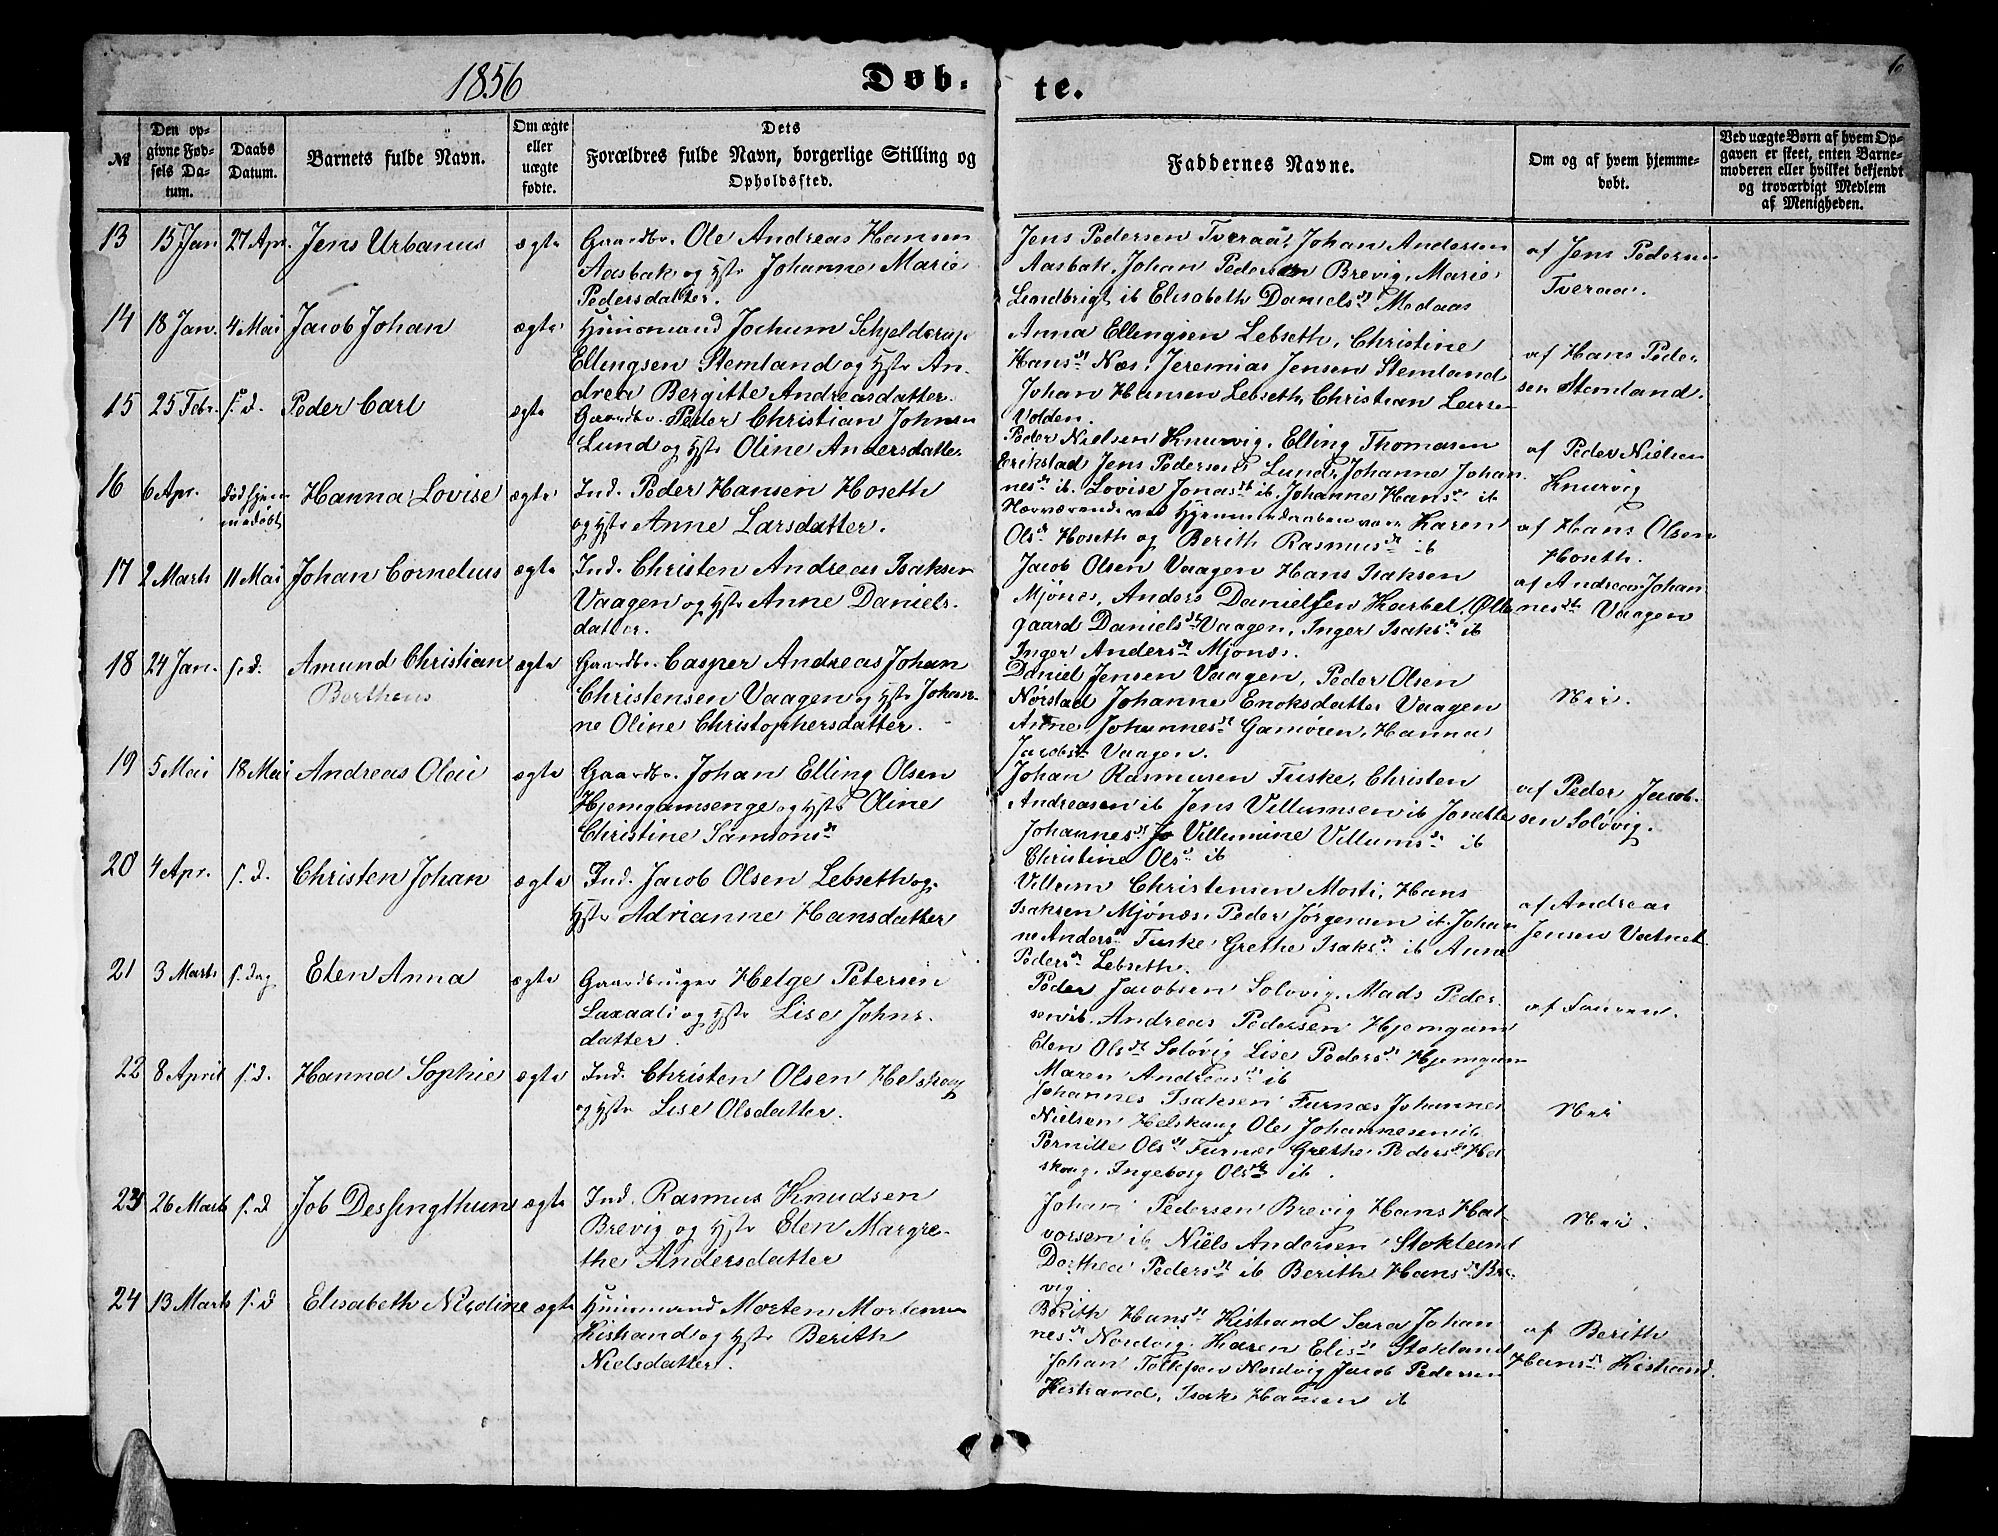 1856 Døb- te. 6
№
Den op-
givne Fød-
sels Da-
tum.
Daabs
Datum.
Barnets fulde Navn.
Om ægte
eller
uægte
fødte.
Dets
Forældres fulde Navn, borgerlige Stilling og
Opholdssted.
Faddernes Navne.
Om og af hvem hjemme-
døbt.
Ved uægte Børn af hvem Op-
gaven er skeet, enten Barne-
moderen eller hvilket bekjendt
og troværdigt Medlem
af Menigheden.
13 15 Jan 27 Apr. Jens Urbanus ægte
Gaardbr. Ole Andreas Hansen
Aasbak og Hstr Johanne Marie
Pedersdatter.
Jens Pedersen Tveraa, Johan Andersen
Aasbak, Johan Pedersen Brevig, Marie
Lundbrigt ib Elisabeth Daniels dt Medaas
af Jens Pedersen
Tveraa.
14 18 Jan. 4 Mai Jacob Johan ægte
Huusmand Jochum Schjelderup
Ellingsen Stemland og Hstr An-
drea Bergitte Andreasdatter.
Anna Ellingsen Lebseth, Christine
Hans dt Næs, Jeremias Jensen Stemland
Johan Hansen Lebseth, Christian Larsen
Volden.
af Hans Peder
sen Stemland.
15 25 Febr. s. d. Peder Carl ægte
Gaardbr. Peder Christian Johnsen
Lund og Hstr Oline Andersdatter
Peder Nielsen Knurvig, Elling Thomasen
Erikstad Jens Pedersen Lund, Johanne Johan
nes dt ib. Lovise Jonas dt ib. Johanne Hans dt ib
af Peder Nielsen
Knurvig
16 6 Apr. død hjem
medøbt Hanna Lovise ægte
Ind. Peder Hansen Hoseth
og Hstr Anne Larsdatter.
Nærværende ved Hjemmedaaben vare Karen
Ols dt Hoseth og Berith Rasmus dt ib
af Hans Olsen
Hoseth.
17 2 Marts 11 Mai Johan Cornelius ægte
Ind. Christen Andreas Isaksen
Vaagen og Hstr Anne Daniels-
datter.
Jacob Olsen Vaagen Hans Isaksen
Mjønes, Anders Danielsen Karbøl, Olle
gaard Daniels dt Vaagen, Inger Isaks dt ib
Inger Anders dt Mjønes.
af Andreas Johan
nes dt Vaagen
18 24 Jan. s. d. Amund Christian
Bertheus ægte
Gaardbr. Casper Andreas Johan
Christensen Vaagen og Hstr Johan-
ne Oline Christophersdatter.
Daniel Jensen Vaagen, Peder Olsen
Nørstad Johanne Enoksdatter Vaagen
Anne Johannes dt Gamøren, Hanna
Jacobs dt Vaagen.
Nei.
19 5 Mai 18 Mai Andreas Olai ægte
Gaardbr. Johan Elling Olsen
Hjemgamsenge og Hstr Oline
Christine Samsons dt
Johan Rasmusen Fuske, Christen
Andreasen ib Jens Villumsen ib Jonette
Johannes dt Jo Villumine Villums dt ib
Christine Ols dt ib
af Peder Jacob-
sen Soløvig.
20 4 Apr. s. d. Christen Johan ægte
Ind. Jacob Olsen Lebseth og
Hstr Adrianne Hansdatter
Villum Christensen Mosti, Hans
Isaksen Mjønes, Peder Jørgensen ib. Johan
ne Anders dt Fuske Grethe Isaks dt ib Anne
Peders dt Lebseth.
af Andreas
Jensen Vatnet
21 3 Marts s. Dag Elen Anna ægte
Gaardbruger Helge Petersen
Laxaali og Hstr Lise Johns-
datter.
Peder Jacobsen Soløvig, Mads Peder-
sen ib. Andreas Pedersen Hjemgam
Elen Ols dt Soløvig Lise Peders dt Hjemgam
Maren Andreas dt ib
af Faderen.
22 8 April s. d. Hanna Sophie ægte
Ind. Christen Olsen Helskoug
og Hstr Lise Olsdatter.
Johannes Isaksen Furnæs Johannes
Nielsen Helskaug Ole Johannesen ib.
Pernille Ols dt Furnæs Grethe Peders dt Hel
skoug, Ingeborg Ols dt ib.
Nei
23 26 Marts s. d Job Dessingthun ægte
Ind. Rasmus Knudsen
Brevig og Hstr Elen Margre-
the Andersdatter
Johan Pedersen Brevig Hans Hal
vorsen ib Niels Andersen Stokland
Dorthea Peders dt ib Berith Hans dt Bre-
vig.
Nei.
24 13 Marts s. d Elisabeth Nicoline ægte
Huusmand Morten Mortensen
Kistrand og Hstr Berith
Nielsdatter.
Berith Hans dt Kistrand Sara Johan
nes dt Nordvig, Karen Elis dt Stokland
Johan Tollefsen Nordvig Jacob Pedersen
Kistrand, Isak Hansen ib
af Berith
Hans dt Kistrand.